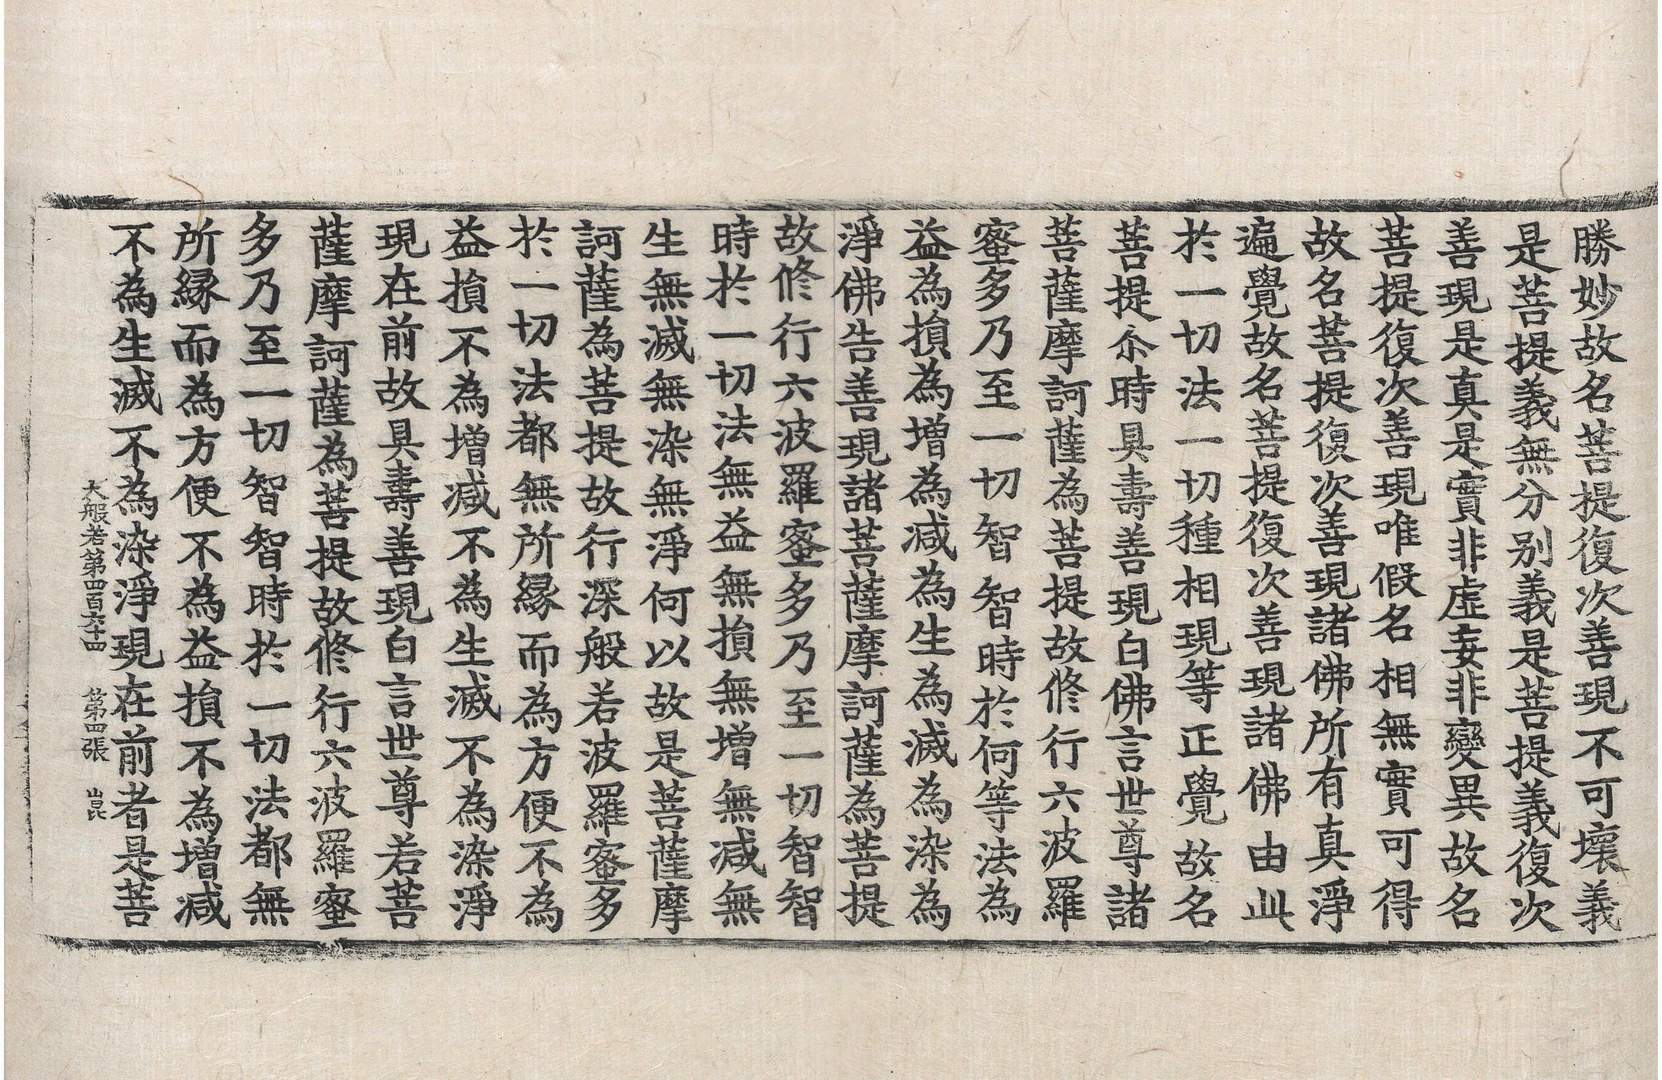 勝妙故名菩提復次善現不可壞義
是菩提義無分別義是菩提義復次
善現是真是實非虛妄非變異故名
菩提復次善現唯假名相無實可得
故名菩提復次善現諸佛所有真淨
遍覺故名菩提復次善現諸佛由此
於一切法一切種相現等正覺故名
菩提尒時具壽善現白佛言世尊諸
菩薩摩訶薩為菩提故修行六波羅
蜜多乃至一切智智時於何等法為
益為損為增為減為生為滅為染為
淨佛告善現諸菩薩摩訶薩為菩提
故修行六波羅蜜多乃至一切智智
時於一切法無益無損無增無減無
生無滅無染無淨何以故是菩薩摩
訶薩為菩提故行深般若波羅蜜多
於一切法都無所緣而為方便不為
益損不為增減不為生滅不為染淨
現在前故具壽善現白言世尊若菩
薩摩訶薩為菩提故修行六波羅蜜
多乃至一切智智時於一切法都無
所緣而為方便不為益損不為增減
不為生滅不為染淨現在前者是菩
大般若第四百六十四 第四張 崑